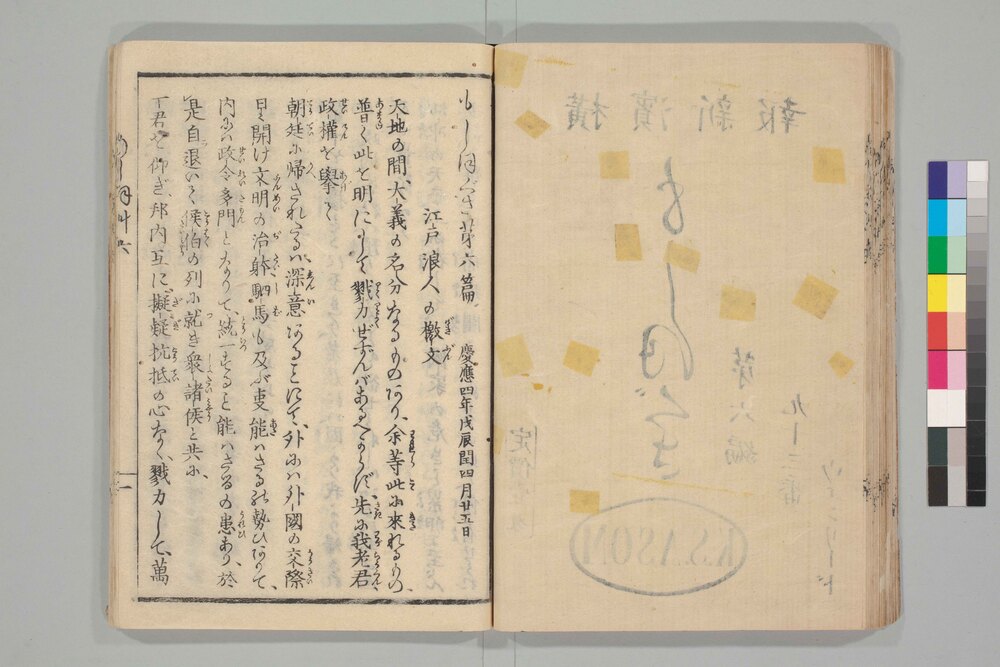 もしほぐさ第六篇 慶應四年戊辰閏四月廿五日
江戸浪人の檄文
天地の間、大義の名分なるものなり、余等此に來れるもの、
普く此を明にして戮力せずんばあるべからず、先に我老君
政權を擧て
朝廷に帰されたるは深意あることにて、外には外國の交際
日に開け文明の治躰駟馬も及ぶ事能はざるの勢ひありて、
内には政令多門となりて、統一すること能はざるの患あり、於
是自退いて侯伯の列に就き衆諸侯と共に、
一君を仰ぎ、邦内互に擬疑抗抵の心なく、戮力して、萬
もしほ草 六
一
横濱新報
もしほぐさ
第六編
九十三番
ウエンリート
定價